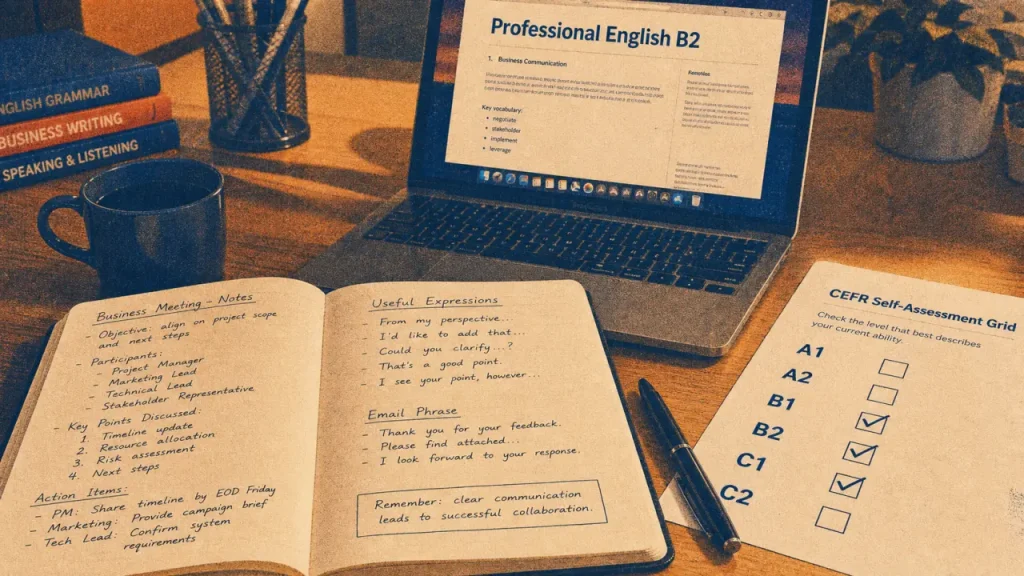 ENGLISH GRAMMAR
BUSINESS WRITING
SPEAKING & LISTENING
Professional English B2
1. Business Communication
Key vocabulary:
• negotiate
• stakeholder
• implement
• leverage
Business Meeting - Notes
- Objective: align on project scope
and next steps
- Participants:
- Project Manager
- Marketing Lead
- Technical Lead
- Stakeholder Representative
- Key Points Discussed:
1. Timeline update
2. Resource allocation
3. Risk assessment
4. Next steps
Action Items:
- PM: Share timeline by EOD Friday
- Marketing: Provide campaign brief
- Tech Lead: Confirm system
requirements
Useful Expressions
- From my perspective...
- I'd like to add that...
- Could you clarify...?
- That's a good point.
- I see your point, however...
Email Phrase
- Thank you for your feedback.
- Please find attached...
- I look forward to your response.
Remember: clear communication
leads to successful collaboration.
CEFR Self-Assessment Grid
Check the level that best describes
your current ability.
A1
A2
B1
B2
C1
C2